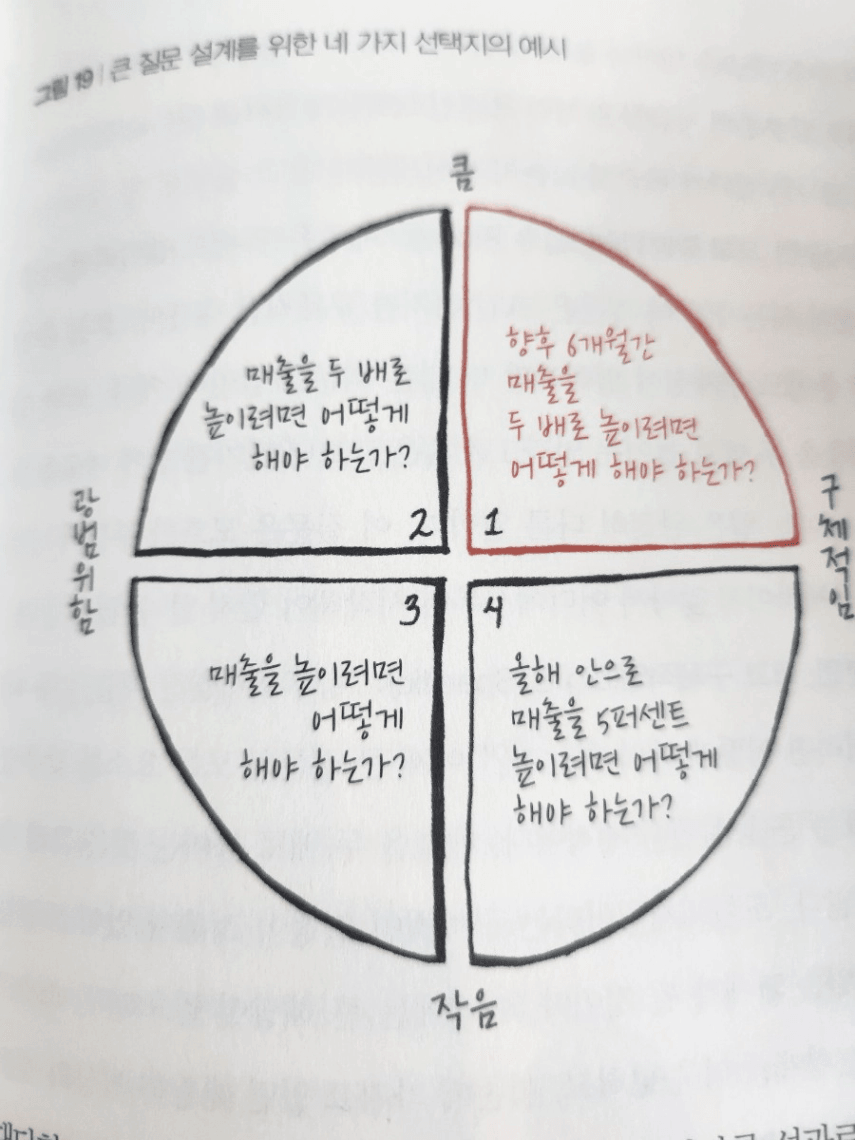 그림 19 | 큰 질문 설계를 위한 네 가지 선택지의 예시
큼
매출을 두 배로
높이려면 어떻게
해야 하는가?
2
향후 6개월간
매출을
두 배로 높이려면
어떻게 해야 하는가?
1
광범위함
구체적임
3
매출을 높이려면
어떻게
해야 하는가?
4
올해 안으로
매출을 5퍼센트
높이려면 어떻게
해야 하는가?
작음